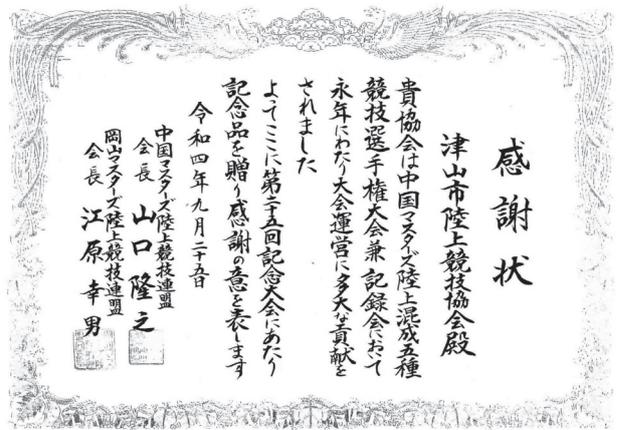 感謝状
津山市陸上競技協会殿
貴協会は中国マスターズ陸上混成五種
競技選手権大会兼記録会において
永年にわたり大会運営に多大な貢献を
されました
よってここに第二十五回記念大会にあたり
記念品を贈り感謝の意を表します
令和四年九月二十五日
中国マスターズ陸上競技連盟
会長 山口隆之
岡山マスターズ陸上競技連盟
会長 江原幸男